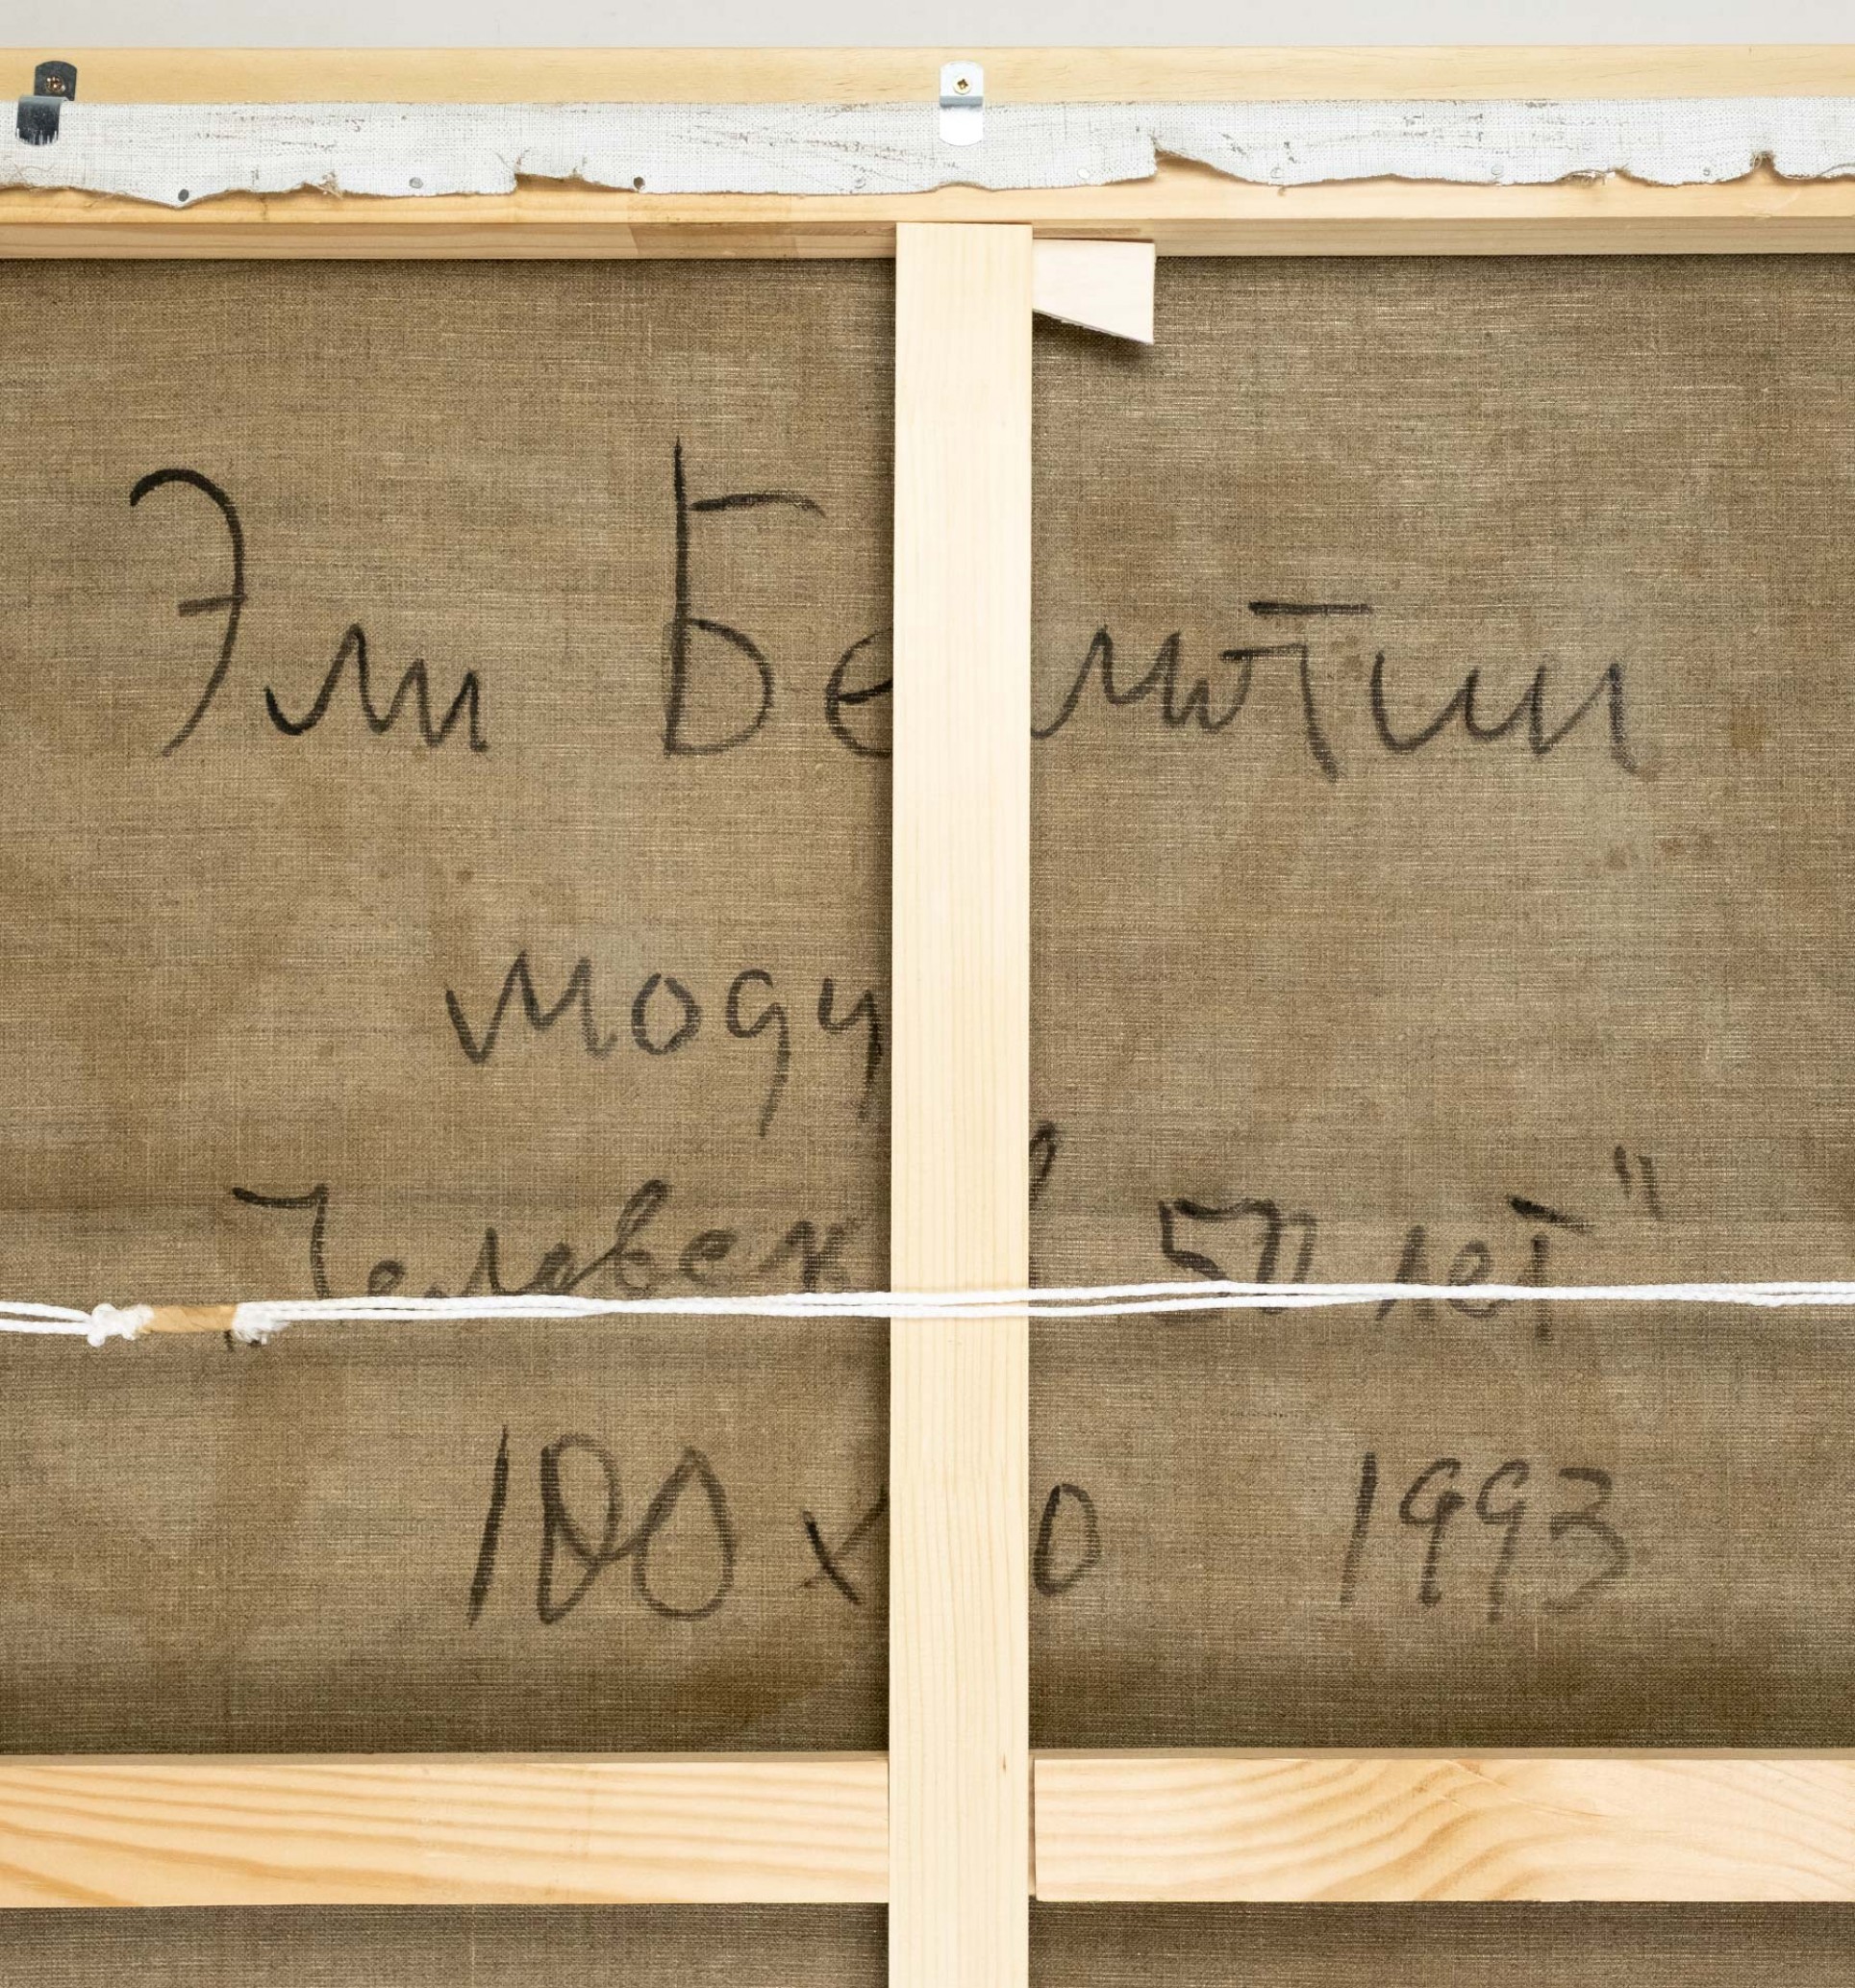 Эли Белютин
моду
"Человек в 50 лет"
100 х 0 1993